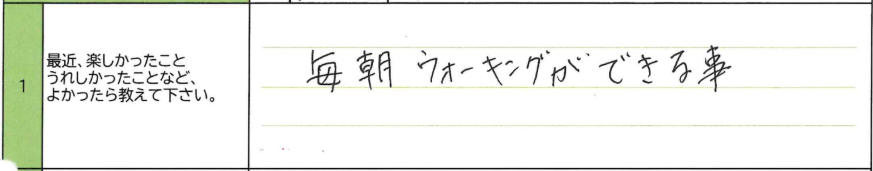 1
最近、楽しかったこと
うれしかったことなど、
よかったら教えて下さい。
毎朝ウォーキングができる事